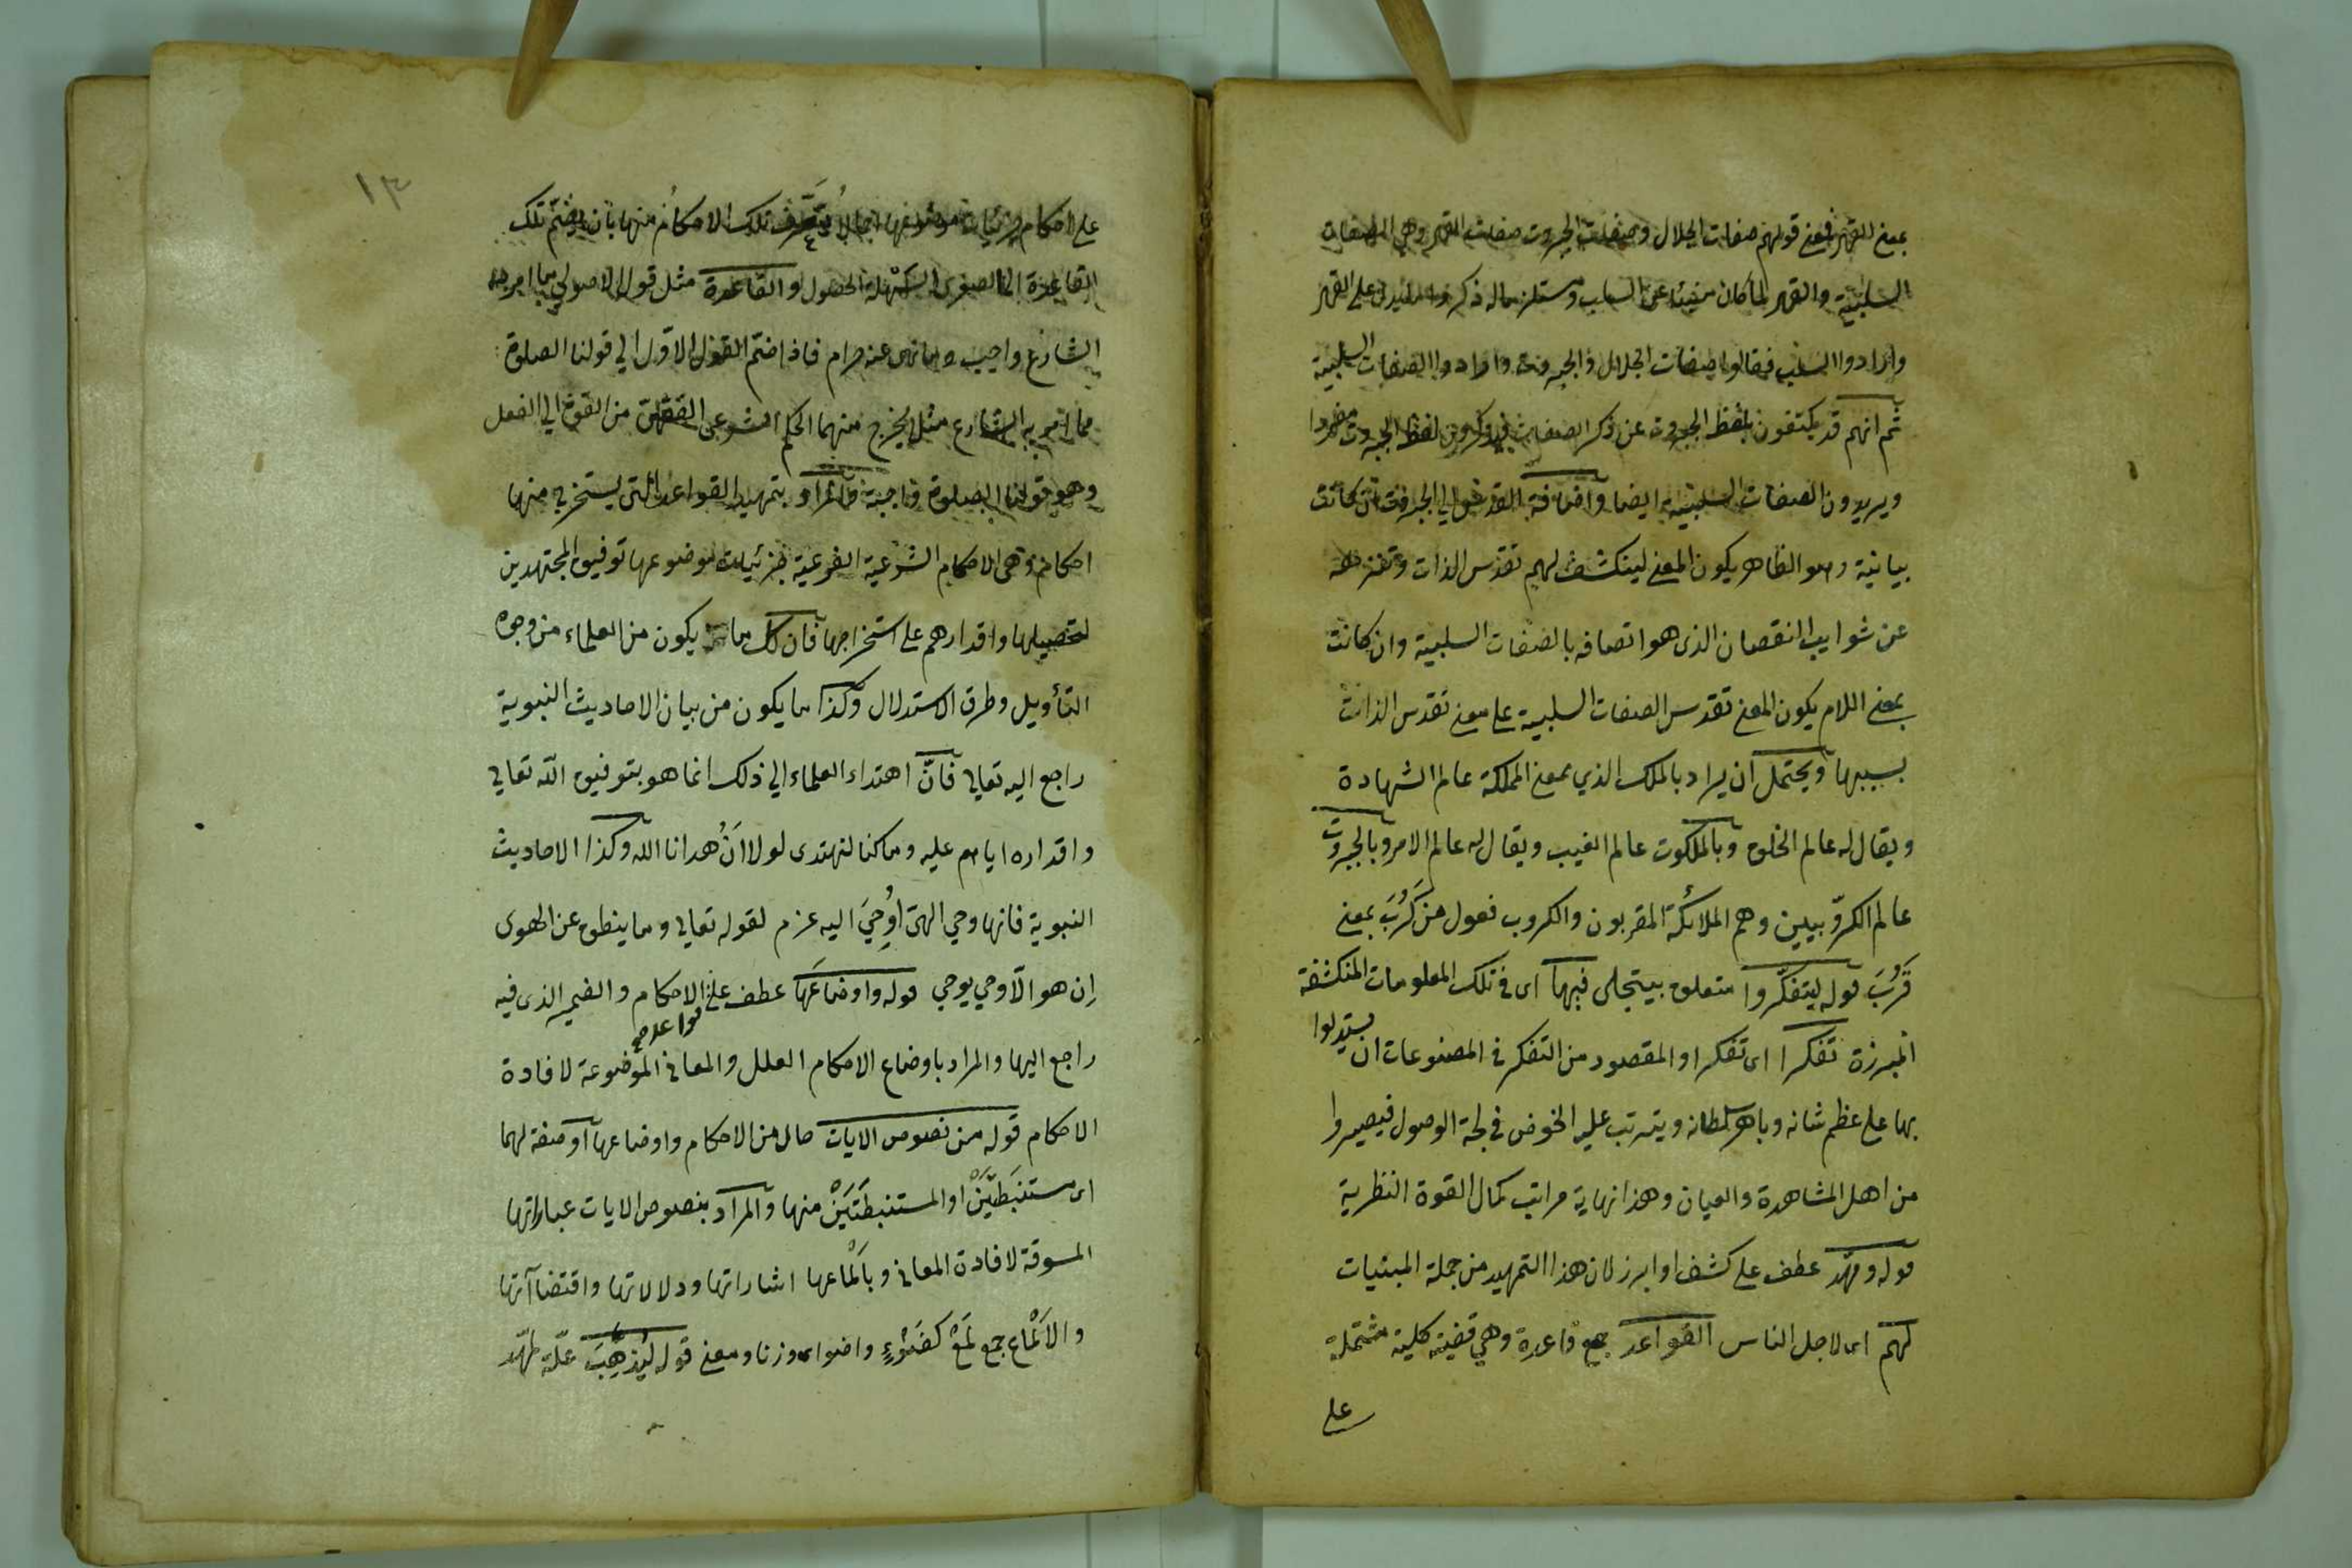 بمعنى القهر فمعنى قولهم صفات الجلال وصفات الجبروت صفات القهر وهي الصفات
السلبية والقهر لما كان منبئا عن السلب ومستلزما له ذكروا ما يدل على القهر
وارادوا السلب فقالوا صفات الجلال والجبروت وارادوا الصفات السلبية
ثم انهم قد يكتفون بلفظ الجبروت عن ذكر الصفات فيذكرون لفظ الجبروت مفردا
ويريدون الصفات السلبية ايضا واضافة القدس الى الجبروت ان كانت
بيانية وهو الظاهر يكون المعنى لينكشف لهم تقدس الذات وتنزهه
عن شوايب النقصان الذى هو اتصافه بالصفات السلبية وان كانت
بمعنى اللام يكون المعنى تقدس الصفات السلبية على معنى تقدس الذات
بسببها ويحتمل ان يراد بالملك الذي بمعنى المملكة عالم الشهادة
ويقال له عالم الخلق وبالملكوت عالم الغيب ويقال له عالم الامر وبالجبروت
عالم الكرّوبيين وهم الملائكة المقربون والكروب فعول من كَرُبَ بمعنى
قَرُبَ قوله ليتفكّروا متعلق بيتجلى فيها اى فى تلك المعلومات المنكشفة
المبرزة تفكرا اى تفكرا والمقصود من التفكر فى المصنوعات ان يستدلوا
بها على عظم شانه وباهر سلطانه ويترتب عليه الخوض فى لجة الوصول فيصيروا
من اهل المشاهدة والعيان وهذا نهاية مراتب كمال القوة النظرية
قوله ومهّد عطف على كشف او ابرز لان هذا التمهيد من جملة المبنيات
لهم اى لاجل الناس القواعد جمع قاعدة وهي قضية كلية مشتملة
على
١٣
على احكام جزئيات موضوعها اجمالا تتعرف تلك الاحكام منها بان يضم تلك
القاعدة الى الصغرى السهلة الحصول والقاعدة مثل قول الاصولي ما امر به
الشارع واجب وما نهى عنه حرام فاذا ضم القول الاول الى قولنا الصلوة
مما امر به الشارع مثلا يخرج منهما الحكم الشرعى الفقهى من القوة الى الفعل
وهو قولنا الصلوة واجبة والمراد بتمهيد القواعد التى يستخرج منها
احكام وهى الاحكام الشرعية الفرعية جزئيات موضوعها توفيق المجتهدين
لتحصيلها واقدارهم على استخراجها فان كل ما يكون من العلماء من وجوه
التأويل وطرق الاستدلال وكذا ما يكون من بيان الاحاديث النبوية
راجع اليه تعالى فانّ اهتداء العلماء الى ذلك انما هو بتوفيق الله تعالى
واقداره اياهم عليه وما كنا لنهتدى لولا اَنْ هدانا الله وكذا الاحاديث
النبوية فانها وحي الهى اُوحِيَ اليه عزم لقوله تعالى وما ينطق عن الهوى
اِن هو الّا وحي يوحي قوله واوضاعَها عطف على الاحكام والضمير الذى فيه
قواعد صح
راجع اليها والمراد باوضاع الاحكام العلل والمعانى الموضوعة لافادة
الاحكام قوله من نصوص الايات حال من الاحكام واوضاعها او صفة لهما
اى مستنبَطَيْنَ او المستنبطَتَيْنَ منها والمراد بنصوص الايات عباراتها
المسوقة لافادة المعانى وبالْماعها اشاراتها ودلالاتها واقتضاآتها
والاَلْماع جمع لَمْعْ كضَوْءٍ واضواء وزنا ومعنى قوله ليُذْهِبَ علّة مهّد